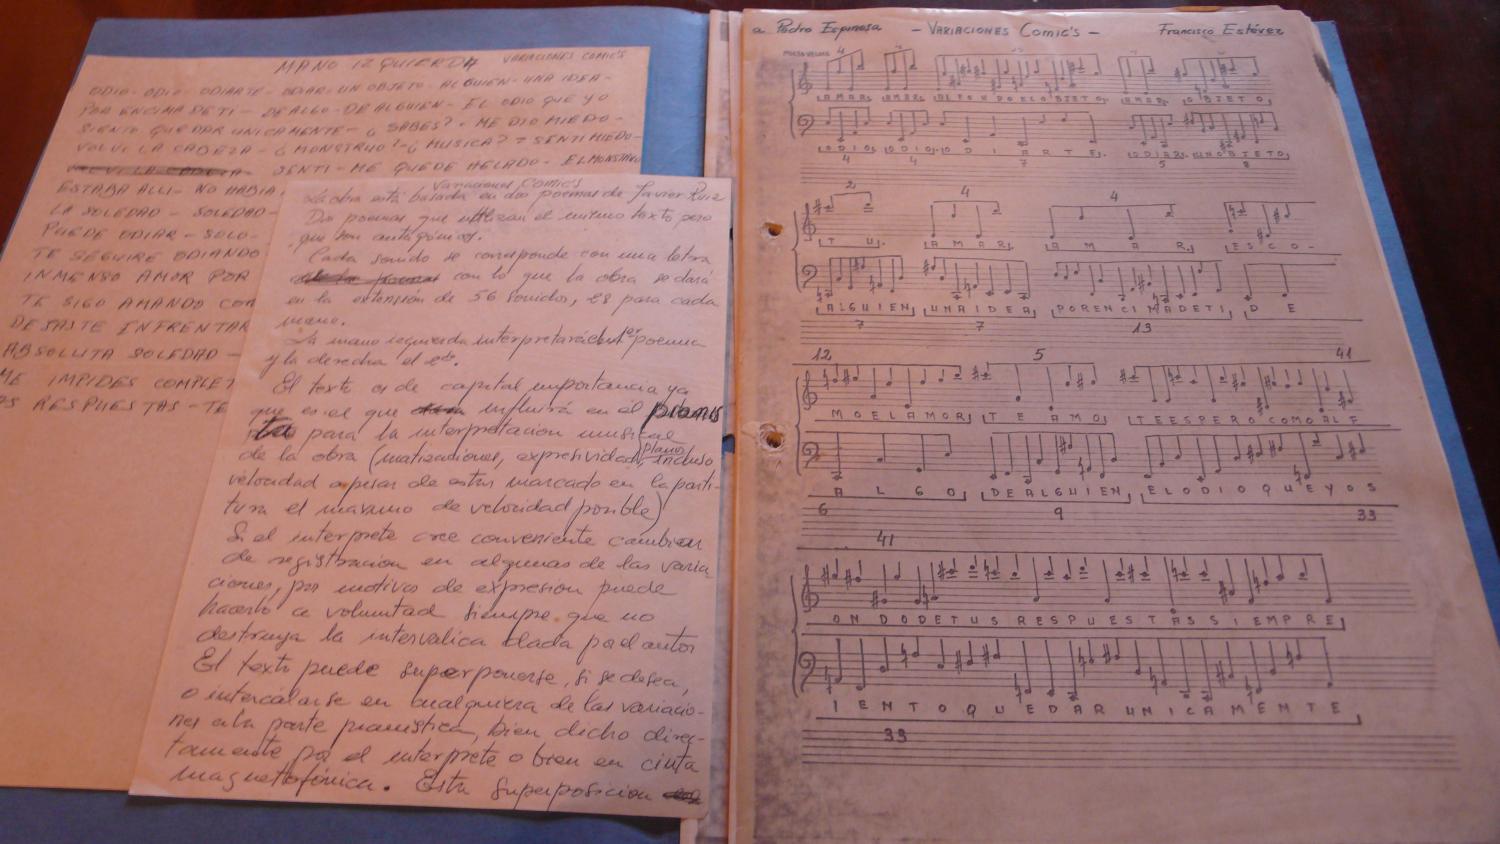 MANO IZQUIERDA VARIACIONES COMIC'S
ODIO - ODIO - ODIARTE - ODIAR: UN OBJETO - ALGUIEN - UNA IDEA -
POR ENCIMA DE TI - DE ALGO - DE ALGUIEN - EL ODIO QUE YO
SIENTO QUEDAR UNICAMENTE - ¿SABES? - ME DIO MIEDO -
VOLVI LA CABEZA - ¿MONSTRUO? - ¿MUSICA? = SENTI MIEDO -
SENTI - ME QUEDE HELADO - EL MONSTRUO
ESTABA ALLI - NO HABIA
LA SOLEDAD - SOLEDAD -
PUEDE ODIAR - SOLO -
TE SEGUIRE ODIANDO
INMENSO AMOR POR
TE SIGO AMANDO CON
DEJASTE ENFRENTAR
ABSOLUTA SOLEDAD -
ME IMPIDES COMPLET
AS RESPUESTAS - TE
Variaciones Comic's
La obra está basada en dos poemas de Javier Ruiz
Dos poemas que utilizan el mismo texto pero
que son antagónicos.
Cada sonido se corresponde con una letra
con lo que la obra se dará
en la extensión de 56 sonidos, 28 para cada
mano.
La mano izquierda interpretará el 1er poema
y la derecha el 2º.
El texto es de capital importancia ya
que es el que influirá en el pianis
ta para la interpretación musical
de la obra (matizaciones, expresividad, plano incluso
velocidad a pesar de estar marcado en la parti-
tura el maximo de velocidad posible)
Si el interprete cree conveniente cambiar
de registración en algunas de las varia-
ciones, por motivos de expresión puede
hacerlo a voluntad siempre que no
destruya la interválica dada por el autor
El texto puede superponerse, si se desea,
o intercalarse en cualquiera de las variacio-
nes a la parte pianística, bien dicho direc-
tamente por el interprete o bien en cinta
magnetofónica. Esta superposicion
a Pedro Espinosa - VARIACIONES Comic's - Francisco Estévez
4
AMAR AMAR ALGODOELOBJETO AMAR OBJETO
ODIO ODIO ODIARTE ODIAR UNOBJETO
4 4 7 5 8
2 4 4
TU AMAR AMAR ESCO-
ALGUIEN UNAIDEA PORENCIMADETI DE
7 7 13
12 5 41
MOELAMOR TEAMO TEESPEROCOMOALF
ALGO DEALGUIEN ELODIOQUEYOS
6 9 33
41
ONDODETUSRESPUESTASSIEMPRE
IENTOQUEDARUNICAMENTE
33